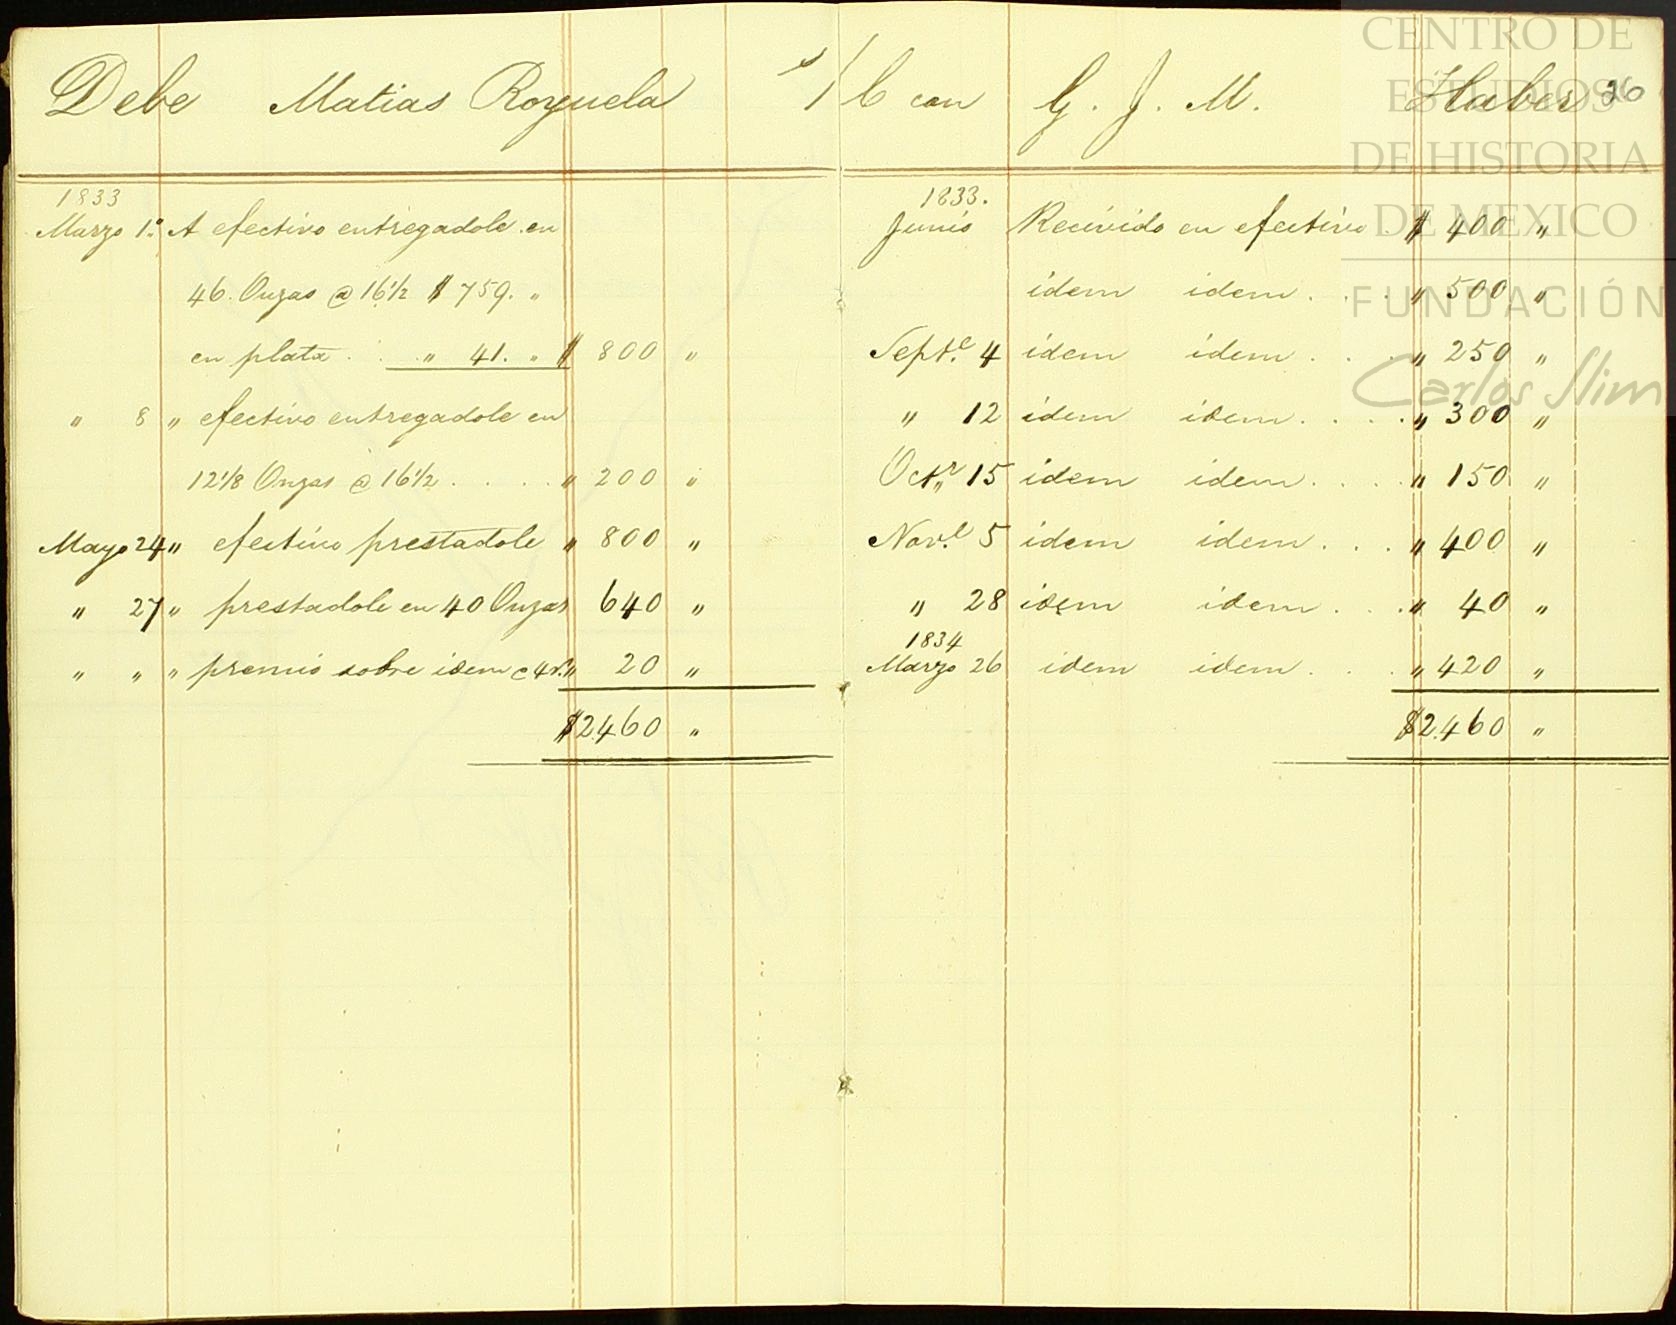 Debe Matias Royuela s/C con G. J. M. Haber 26
1833
Marzo 1º A efectivo entregadole en
46. Onzas @ 16½ $ 759. "
en plata . . " 41. " $ 800 "
" 8 " efectivo entregadole en
12⅛ Onzas @ 16½ . . . . " 200 "
Mayo 24 " efectivo prestadole " 800 "
" 27 " prestadole en 40 Onzas 640 "
" " " premio sobre idem @ 4r. " 20 "
$2.460 "
1833.
Junio Recivido en efectivo . $ 400 "
idem idem . . . " 500 "
Septe. 4 idem idem . . . " 250 "
" 12 idem idem . . . . " 300 "
Octr. 15 idem idem . . . . " 150 "
Nove. 5 idem idem . . . " 400 "
" 28 idem idem . . . " 40 "
1834
Marzo 26 idem idem . . . " 420 "
$2.460 "
CENTRO DE
ESTUDIOS
DE HISTORIA
DE MEXICO
FUNDACIÓN
Carlos Slim